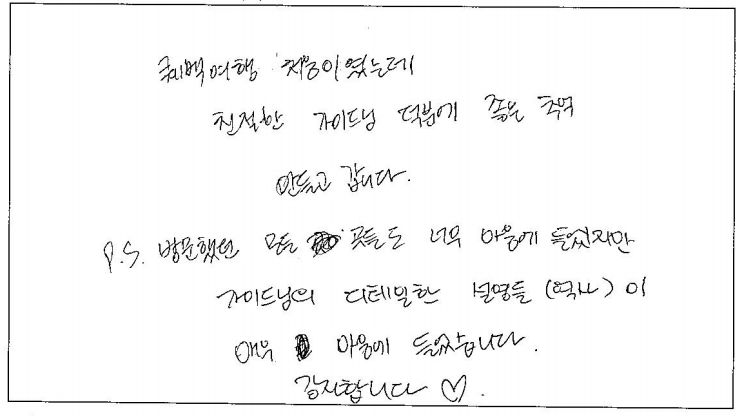 퀘백여행 처음이였는데
친절한 가이드님 덕분에 좋은 추억
만들고 갑니다.
P.S. 방문했던 모든 곳들도 너무 마음에 들었지만
가이드님의 디테일한 설명들 (역사) 이
매우 마음에 들었습니다.
감사합니다 ♡.